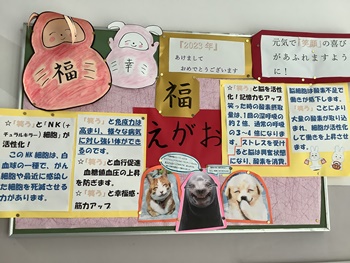 福
幸
『2023年』
あけまして
おめでとうございます
元気で『笑顔』の喜び
があふれますよう
に！
福
えがお
☆『笑う』とNK(ナ
チュラルキラー)細胞」が
活性化!
このNK細胞は、白
血球の一種で、がん
細胞や最近に感染した
細胞を死滅させる
力があります。
☆『笑う』と免疫力は
高まり、様々な病気
に対し強い体ができ
るのです。
☆『笑う』と血行促進
血糖値血圧の上昇
を防ぎます。
☆『笑う』と幸福感・
筋力アップ
☆『笑う』と脳を活性
化!記憶力もアップ
笑った時の酸素摂取
量は、1回の深呼吸の
約2倍、通常の呼吸
の3~4倍になりま
す。ストレスを受け
ると脳は異常状態
になり、酸素を消費。
脳細胞は酸素不足で
働きが低下します。
『笑う』ことにより
大量の酸素が取り込
まれ、細胞が活性化
して集中力の上昇に